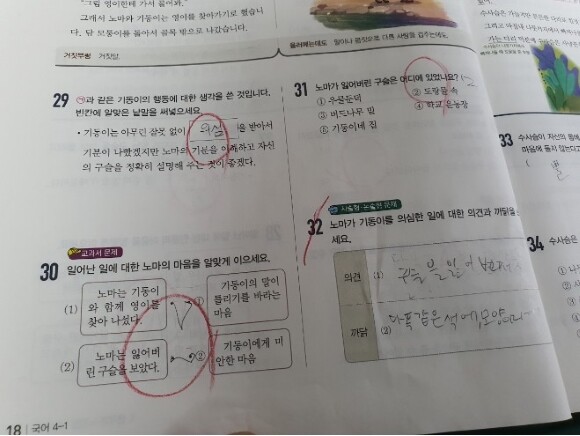 그래서 노마와 기동이는 영이를 찾아가기로 했습니
다. 담 모퉁이를 돌아서 골목 밖으로 나갔습니다.
거짓부렁 거짓말.
29 ㉠과 같은 기동이의 행동에 대한 생각을 쓴 것입니다.
빈칸에 알맞은 낱말을 써넣으세요.
• 기동이는 아무런 잘못 없이 의심 을 받아서
기분이 나빴겠지만 노마의 기분을 이해하고 자신
의 구슬을 정확히 설명해 주는 것이 좋겠다.
교과서 문제
30 일어난 일에 대한 노마의 마음을 알맞게 이으세요.
(1) 노마는 기동이
와 함께 영이를
찾아 나섰다.
① 기동이의 말이
틀리기를 바라는
마음
(2) 노마는 잃어버
린 구슬을 보았다.
② 기동이에게 미
안한 마음
18 국어 4-1
31 노마가 잃어버린 구슬은 어디에 있었나요?
① 우물둔덕
② 도랑물 속
③ 버드나무 밑
④ 학교 운동장
⑤ 기동이네 집
서술형·논술형 문제
32 노마가 기동이를 의심한 일에 대한 의견과 까닭을
세요.
의견 (1) 구슬을 잃어
까닭 (2) 다 똑같은 색에 모양
33 수사슴이 자신의 뿔에
마음에 들지 않는다고
( 뿔
34 수사슴은
① 나
② 사
③
④
⑤